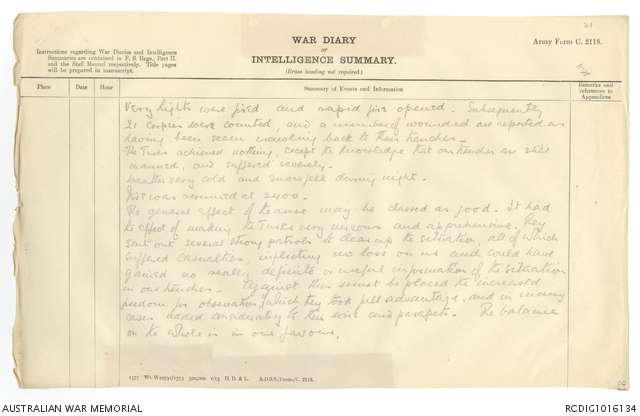 21
WAR DIARY
or
INTELLIGENCE SUMMARY.
(Erase heading not required.)
Army Form C. 2118.
Instructions regarding War Diaries and Intelligence
Summaries are contained in F. S. Regs., Part II.
and the Staff Manual respectively. Title pages
will be prepared in manuscript.
Place
Date
Hour
Summary of Events and Information
Remarks and
references to
Appendices
Very lights were fired and rapid fire opened. Subsequently
21 corpses were counted, and a number of wounded are reported as
having been seen crawling back to their trenches.
The Turks achieved nothing, except the knowledge that our trenches are still
manned, and suffered severely.
Weather very cold and snow fell during night.
was resumed at 2400.
The general effect of the ruse may be classed as good. It had
the effect of making the Turks very nervous and apprehensive. They
sent out several strong patrols to clear up the situation, all of which
suffered casualties, inflicting no loss on us and could have
gained no really definite or useful information of the situation
in our trenches. Against this must be placed the increased
freedom for observation, which they took full advantage, and in many
cases added considerably to their wire and parapets. The balance
on the whole is in our favour.
1577 Wt. W10791/1773 500,000 1/15 D. D. & L. A.D.S.S./Forms/C. 2118.
AUSTRALIAN WAR MEMORIAL
RCDIG1016134